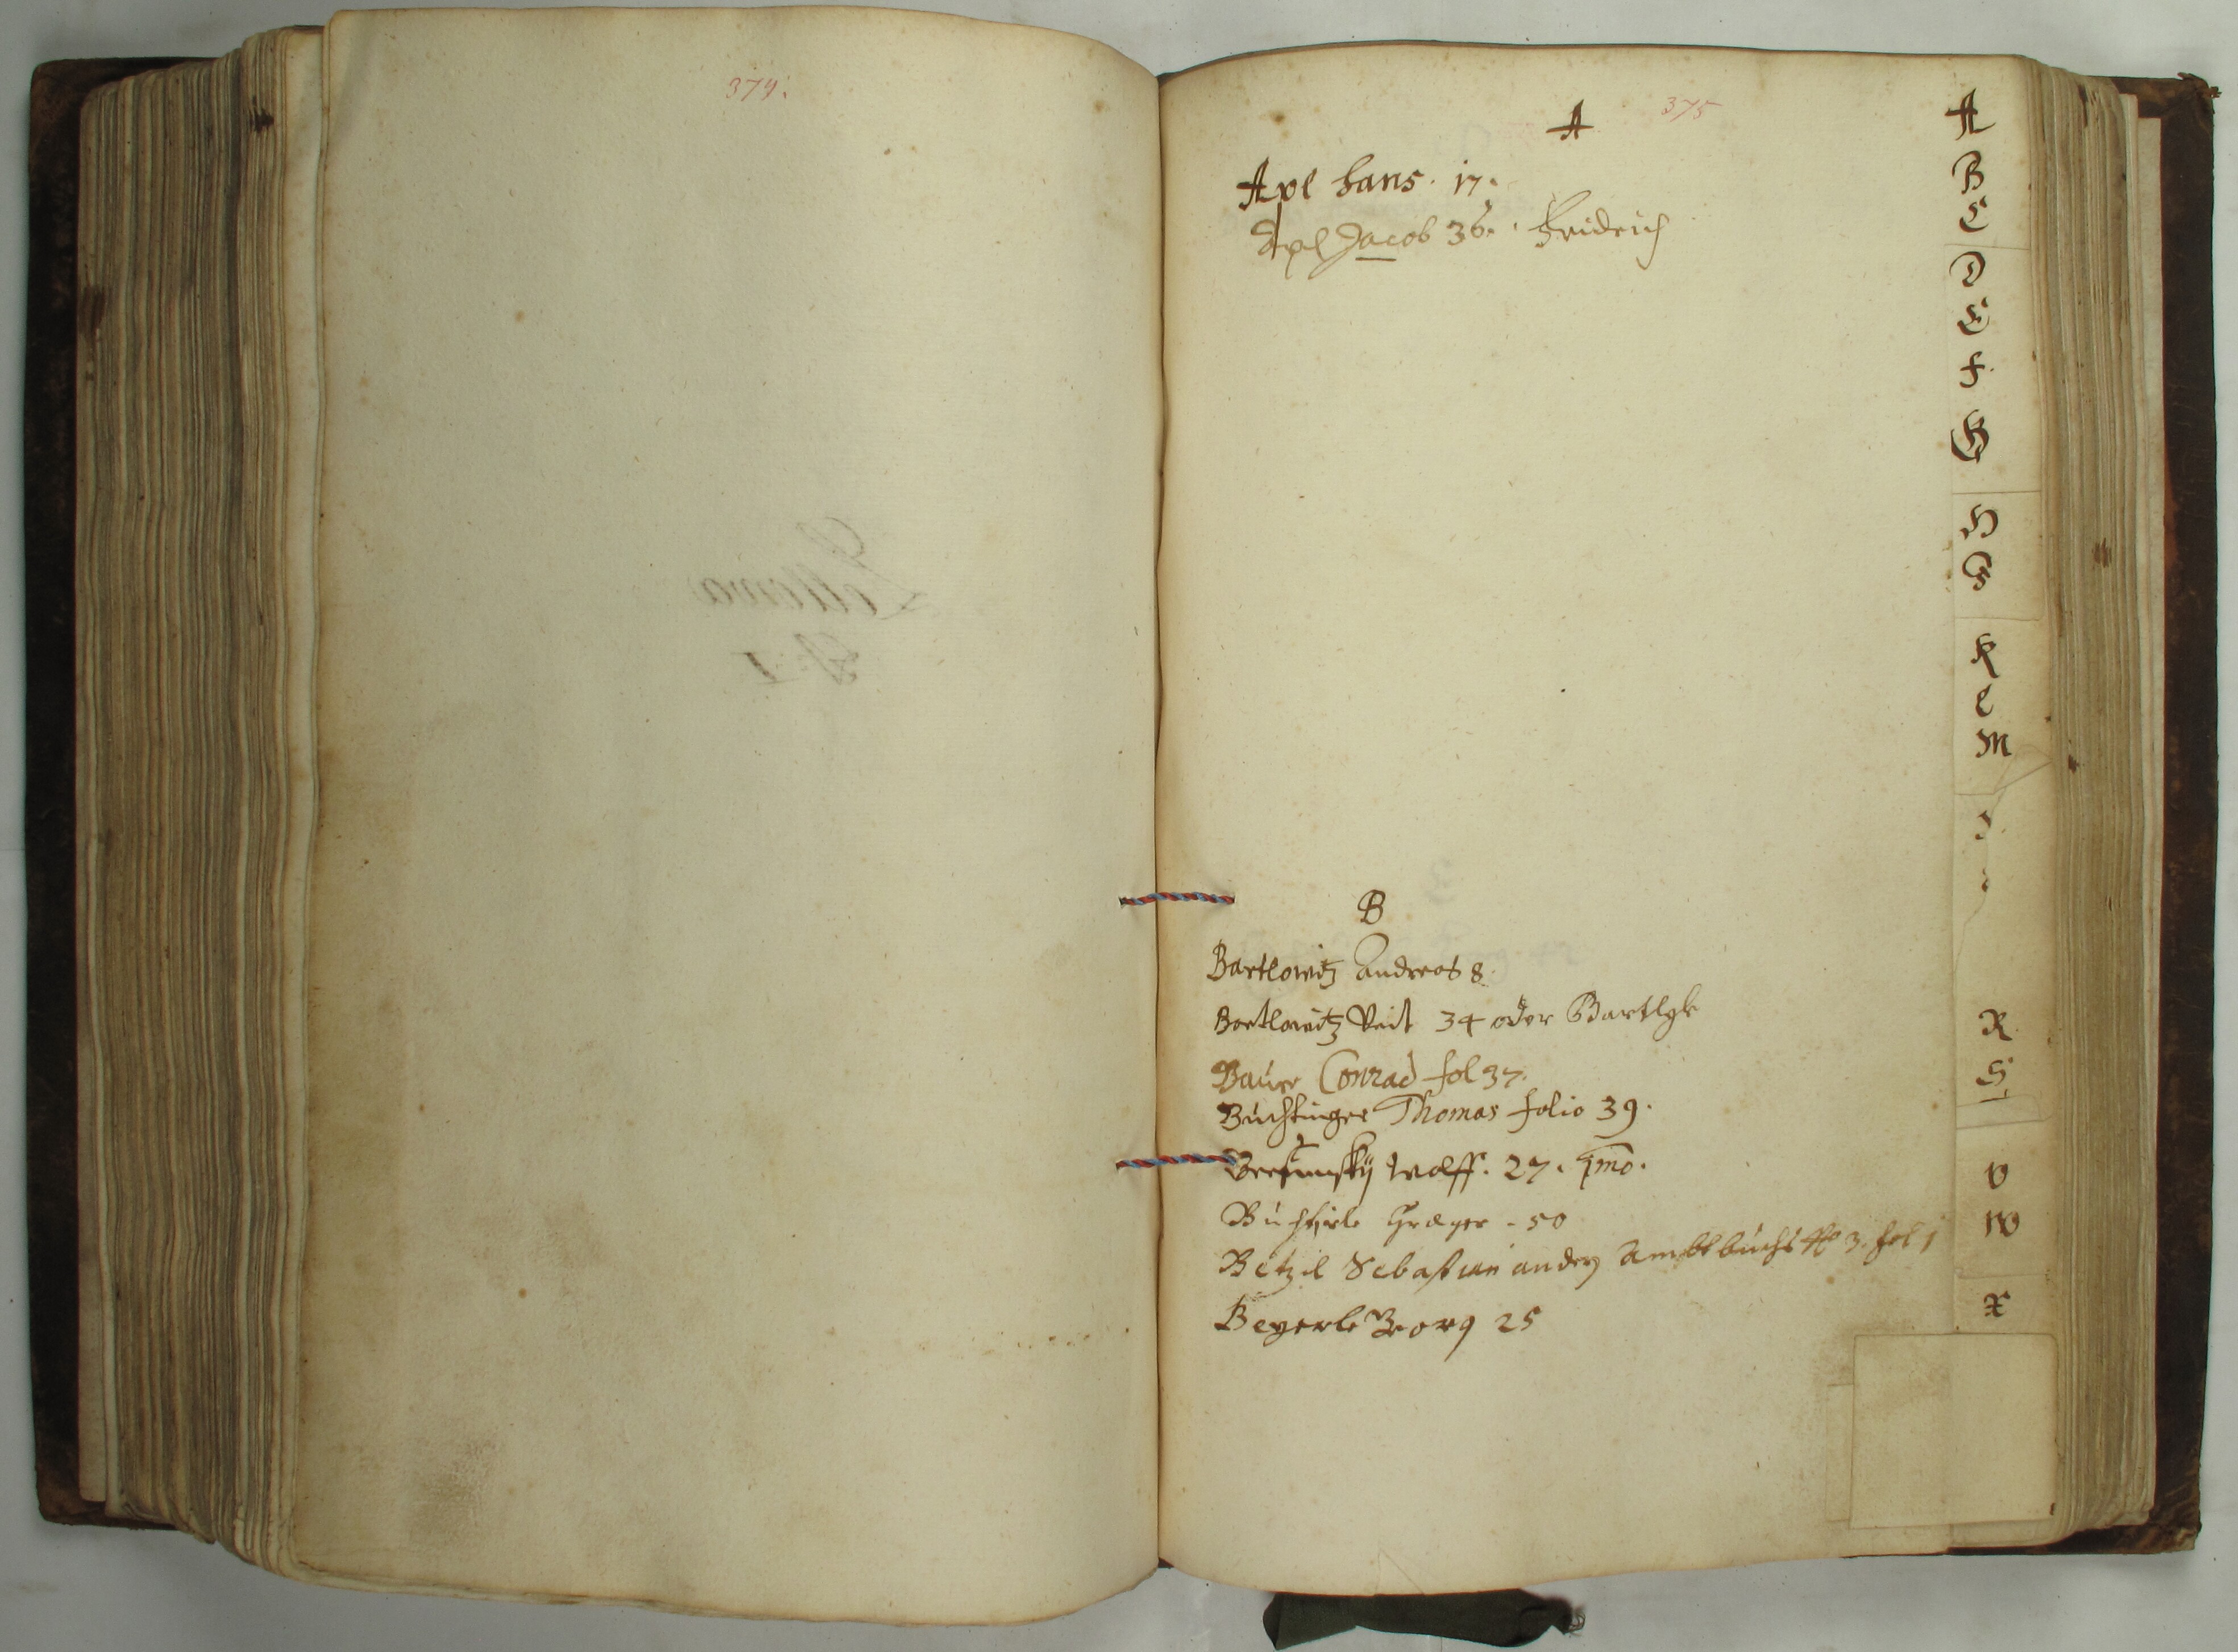 374.
375
A
Apl Hans. 17.
Apl Jacob 36. Fridrich
B
Bartlowitz Andreas 8.
Bartlowitz Veit 34 oder Bartlyk
Bauer Conrad fol 37.
Thomas folio 39.
Wolff. 27. 
Greger - 50
Betzel Sebastian andern Ambtbuchs No 3. fol 1
Beyerle Georg 25
A
B
C
D
E
F.
G
H
J
K
L
M
R
S
V
W
X